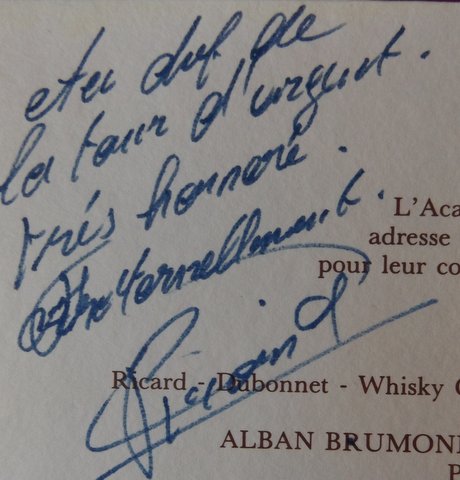 du chef de
la tour d'argent.
très honoré.
Fraternellement.
L'Aca
adresse
pour leur co
Ricard - Dubonnet - Whisky C
ALBAN BRUMON
P